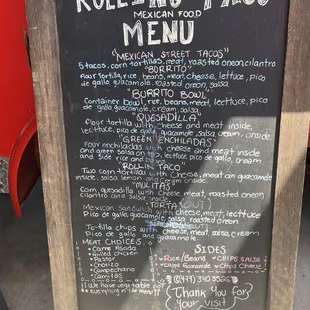 ROLLING TACO
MEXICAN FOOD
MENU
"MEXICAN STREET TACOS"
5 tacos, corn tortillas, meat, roasted onion, cilantro
"BURRITO"
flour tortilla, rice, beans, meat, cheese, lettuce, pico
de gallo, guacamole, roasted onion, salsa
"BURRITO BOWL"
Container bowl, rice, beans, meat, lectuce, pico
de gallo guacamole, cream, salsa
"QUESADILLA"
Flour tortilla with cheese and meat inside,
lecttuce, pico de gallo, guacamole, salsa cream, inside
"GREEN ENCHILADAS"
Four enchiladas with cheese and meat inside
and green salsa on top, lettuce, pico de gallo, cream
and side rice and beans
"ROLLIN TACO"
Two corn tortillas with cheese, meat and guacamole
inside, salsa, lemon and cream on side.
"MULITAS"
Corn quesadilla with cheese, meat, roasted onion
and cilantro inside
"TORTA"
Mexican Sandwich with cheese, meat, lettuce
Pico de gallo, guacamole, salsa, roasted onion
Tortilla chips with cheese, meat, salsa, cream
Pico de gallo and guacamole
MEAT CHOICES
• Carne Asada
• Grilled chicken
• Pastor
• Chorizo
• Campechano
• Carnitas
!! We have vegetarian
everything in the menu!!
SIDES
• Rice/Beans • CHIPS SALSA
• Chips Guacamole • Chips Cheese
Thank you for
your VISIT